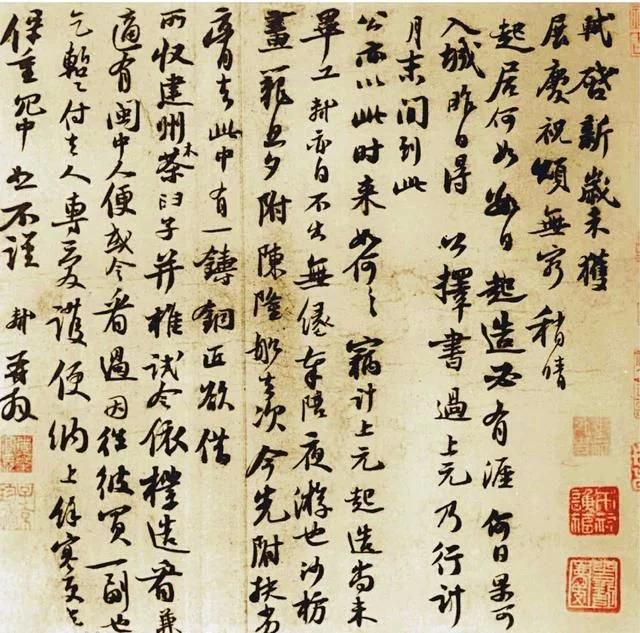 軾啓新歲未獲
展慶祝頌無窮稍晴
起居何如數日起造必有涯何日果可
入城昨日得公擇書過上元乃行計
月末間到此
公亦以此時來如何々竊計上元起造尚未
畢工軾亦自不出無緣奉陪夜游也沙枋
畫籠旦夕附陳隆船去次今先附扶劣
膏去此中有一鑄銅匠欲借
所收建州木茶臼子并椎試令依樣造看兼
適有閩中人便或令看過因往彼買一副也
乞暫付去人專愛護便納上餘寒更乞
保重冗中恕不謹軾再拜